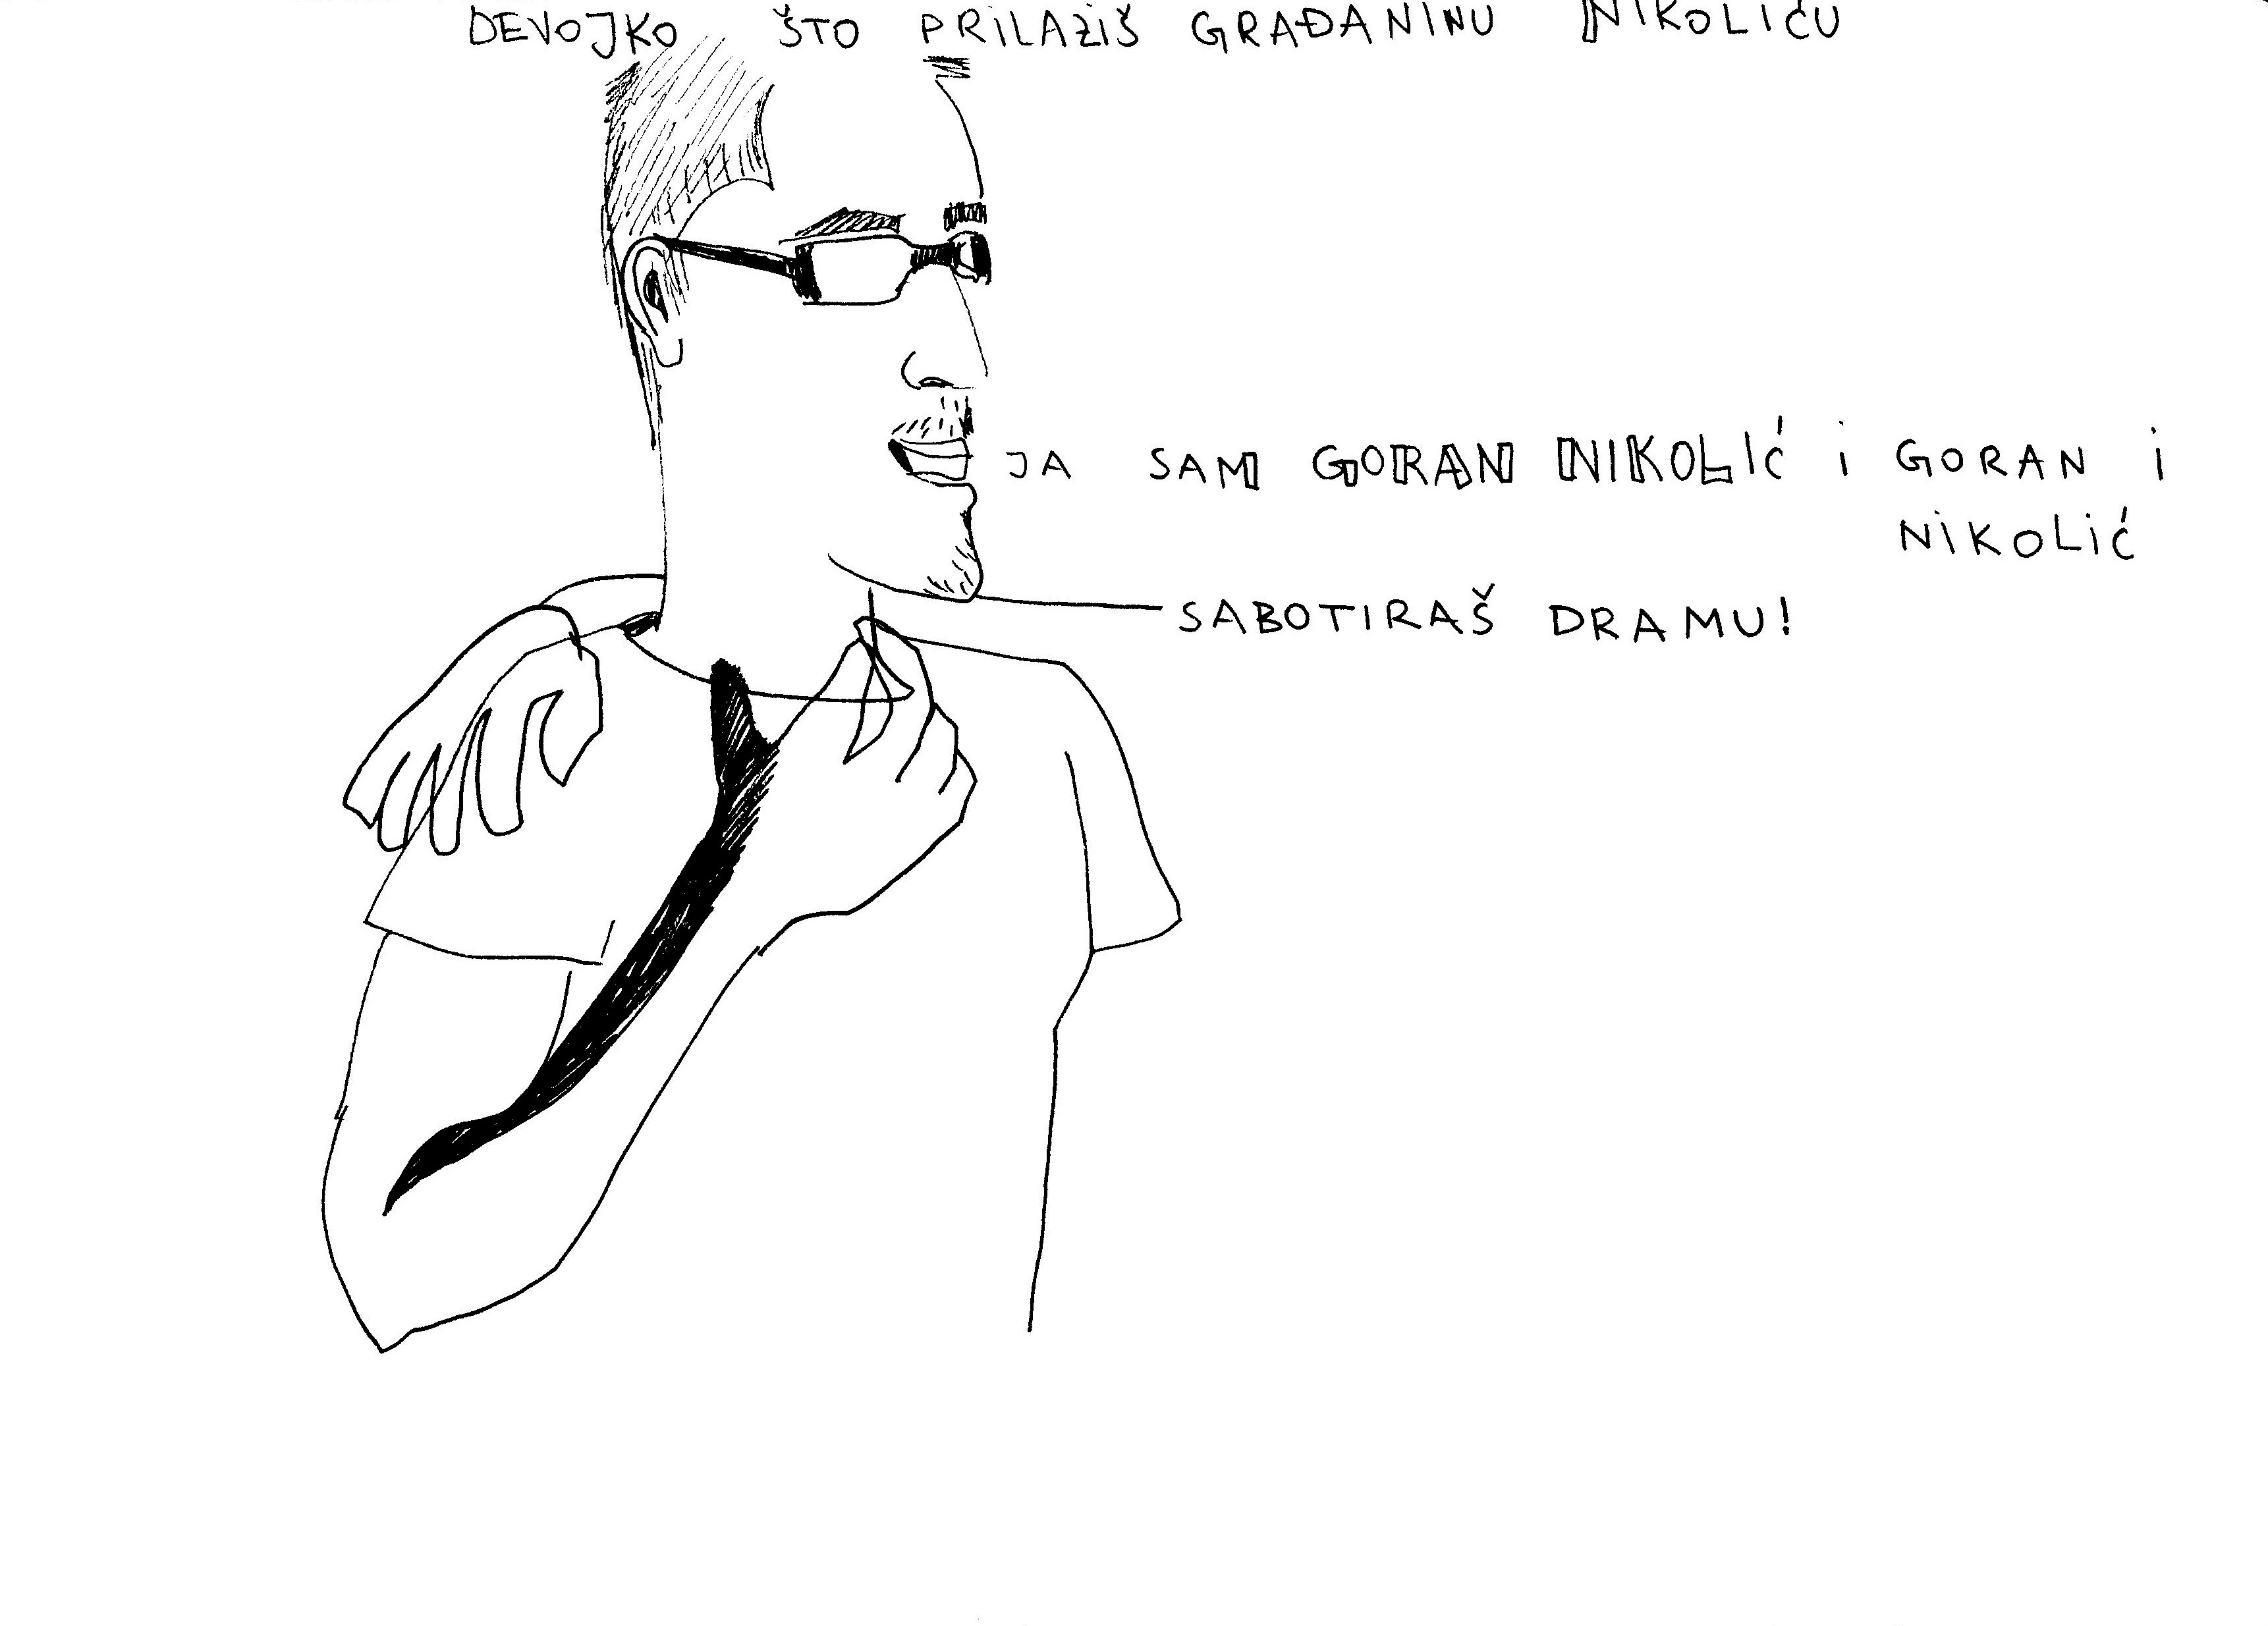 DEVOJKO ŠTO PRILAZIŠ GRAĐANINU NIKOLIĆU
JA SAM GORAN NIKOLIĆ i GORAN i
NiKOLiĆ
SABOTIRAŠ DRAMU!